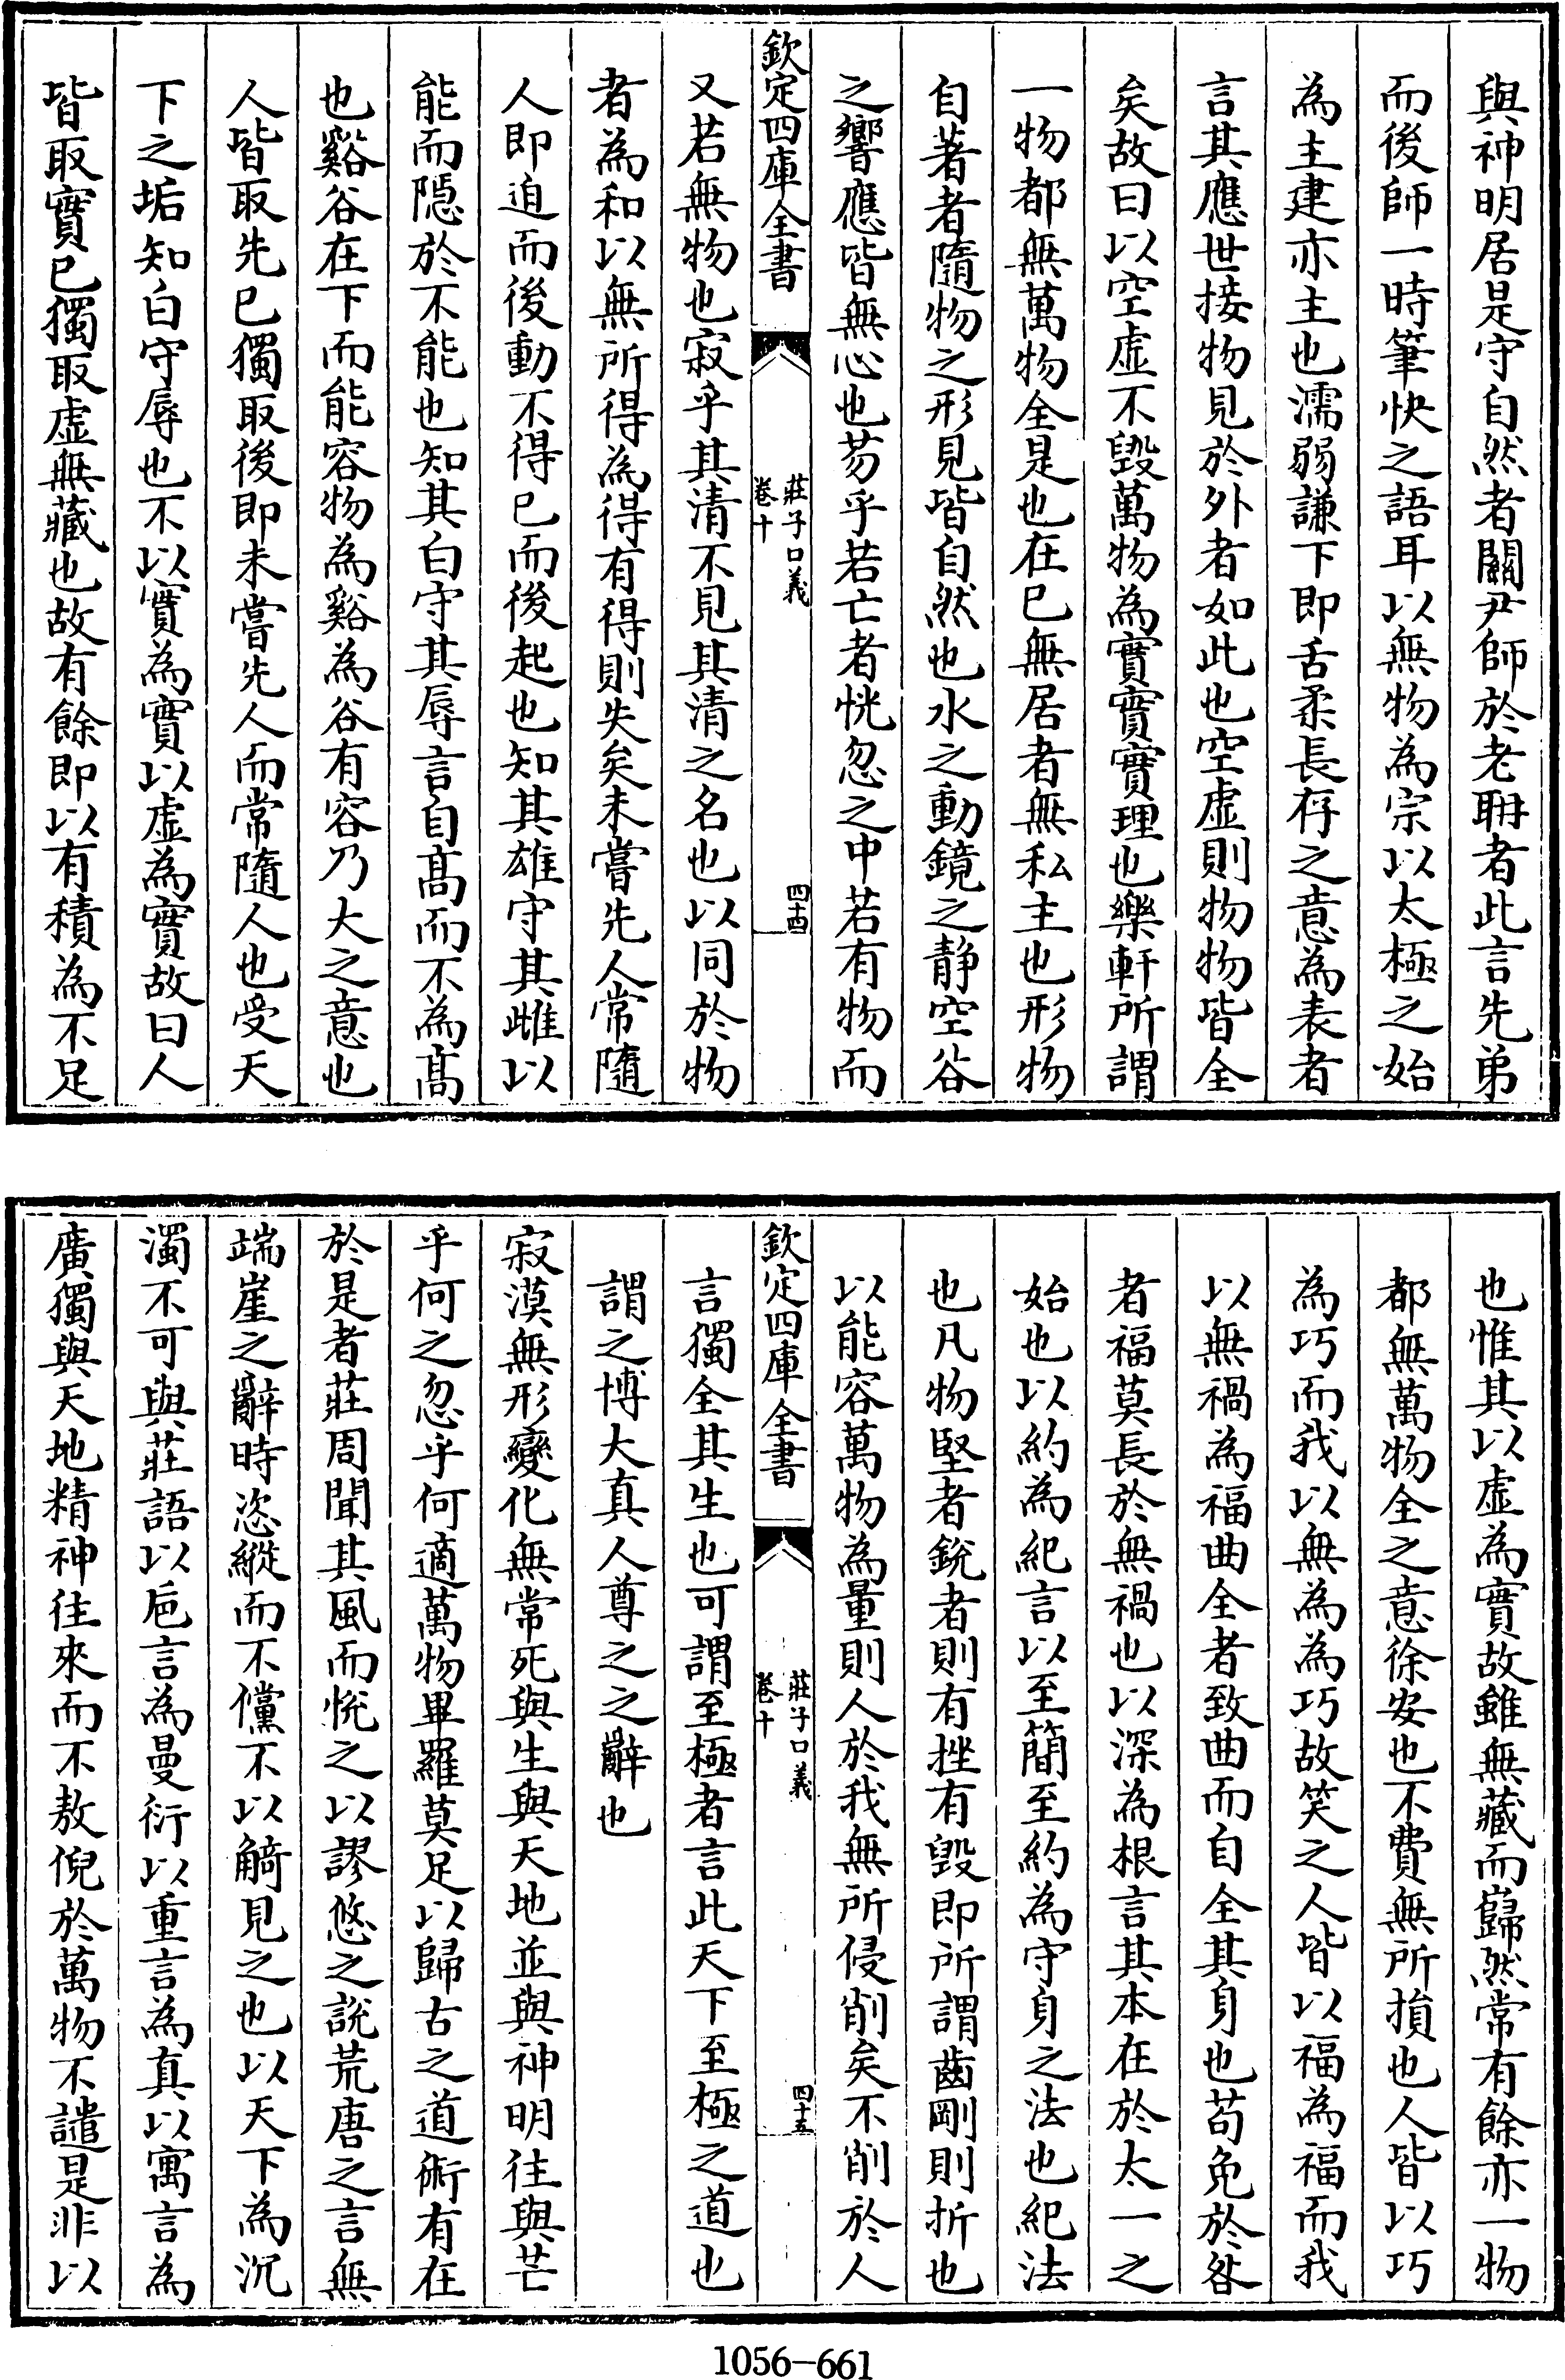 與神明居是守自然者關尹師於老耼者此言先弟
而後師一時筆快之語耳以無物為宗以太極之始
為主建亦主也濡弱謙下即舌柔長存之意為表者
言其應世接物見於外者如此也空虚則物物皆全
矣故曰以空虚不毀萬物為實實實理也樂軒所謂
一物都無萬物全是也在已無居者無私主也形物
自著者隨物之形見皆自然也水之動鏡之静空谷
之響應皆無心也芴乎若亡者恍忽之中若有物而
欽定四庫全書
莊子口義
卷十
四十四
又若無物也寂乎其清不見其清之名也以同於物
者為和以無所得為得有得則失矣未嘗先人常隨
人即迫而後動不得已而後起也知其雄守其雌以
能而隠於不能也知其白守其辱言自髙而不為髙
也谿谷在下而能容物為谿為谷有容乃大之意也
人皆取先已獨取後即未嘗先人而常隨人也受天
下之垢知白守辱也不以實為實以虚為實故曰人
皆取實已獨取虚無藏也故有餘即以有積為不足
也惟其以虚為實故雖無藏而巋然常有餘亦一物
都無萬物全之意徐安也不費無所損也人皆以巧
為巧而我以無為為巧故笑之人皆以福為福而我
以無禍為福曲全者致曲而自全其身也苟免於咎
者福莫長於無禍也以深為根言其本在於太一之
始也以約為紀言以至簡至約為守身之法也紀法
也凡物堅者銳者則有挫有毀即所謂齒剛則折也
以能容萬物為量則人於我無所侵削矣不削於人
欽定四庫全書
莊子口義
卷十
四十五
言獨全其生也可謂至極者言此天下至極之道也
謂之博大真人尊之之辭也
寂漠無形變化無常死與生與天地並與神明往與芒
乎何之忽乎何適萬物畢羅莫足以歸古之道術有在
於是者莊周聞其風而悦之以謬悠之說荒唐之言無
端崖之辭時恣縱而不儻不以觭見之也以天下為沉
濁不可與莊語以巵言為曼衍以重言為真以寓言為
廣獨與天地精神徃來而不敖倪於萬物不譴是非以
1056-661